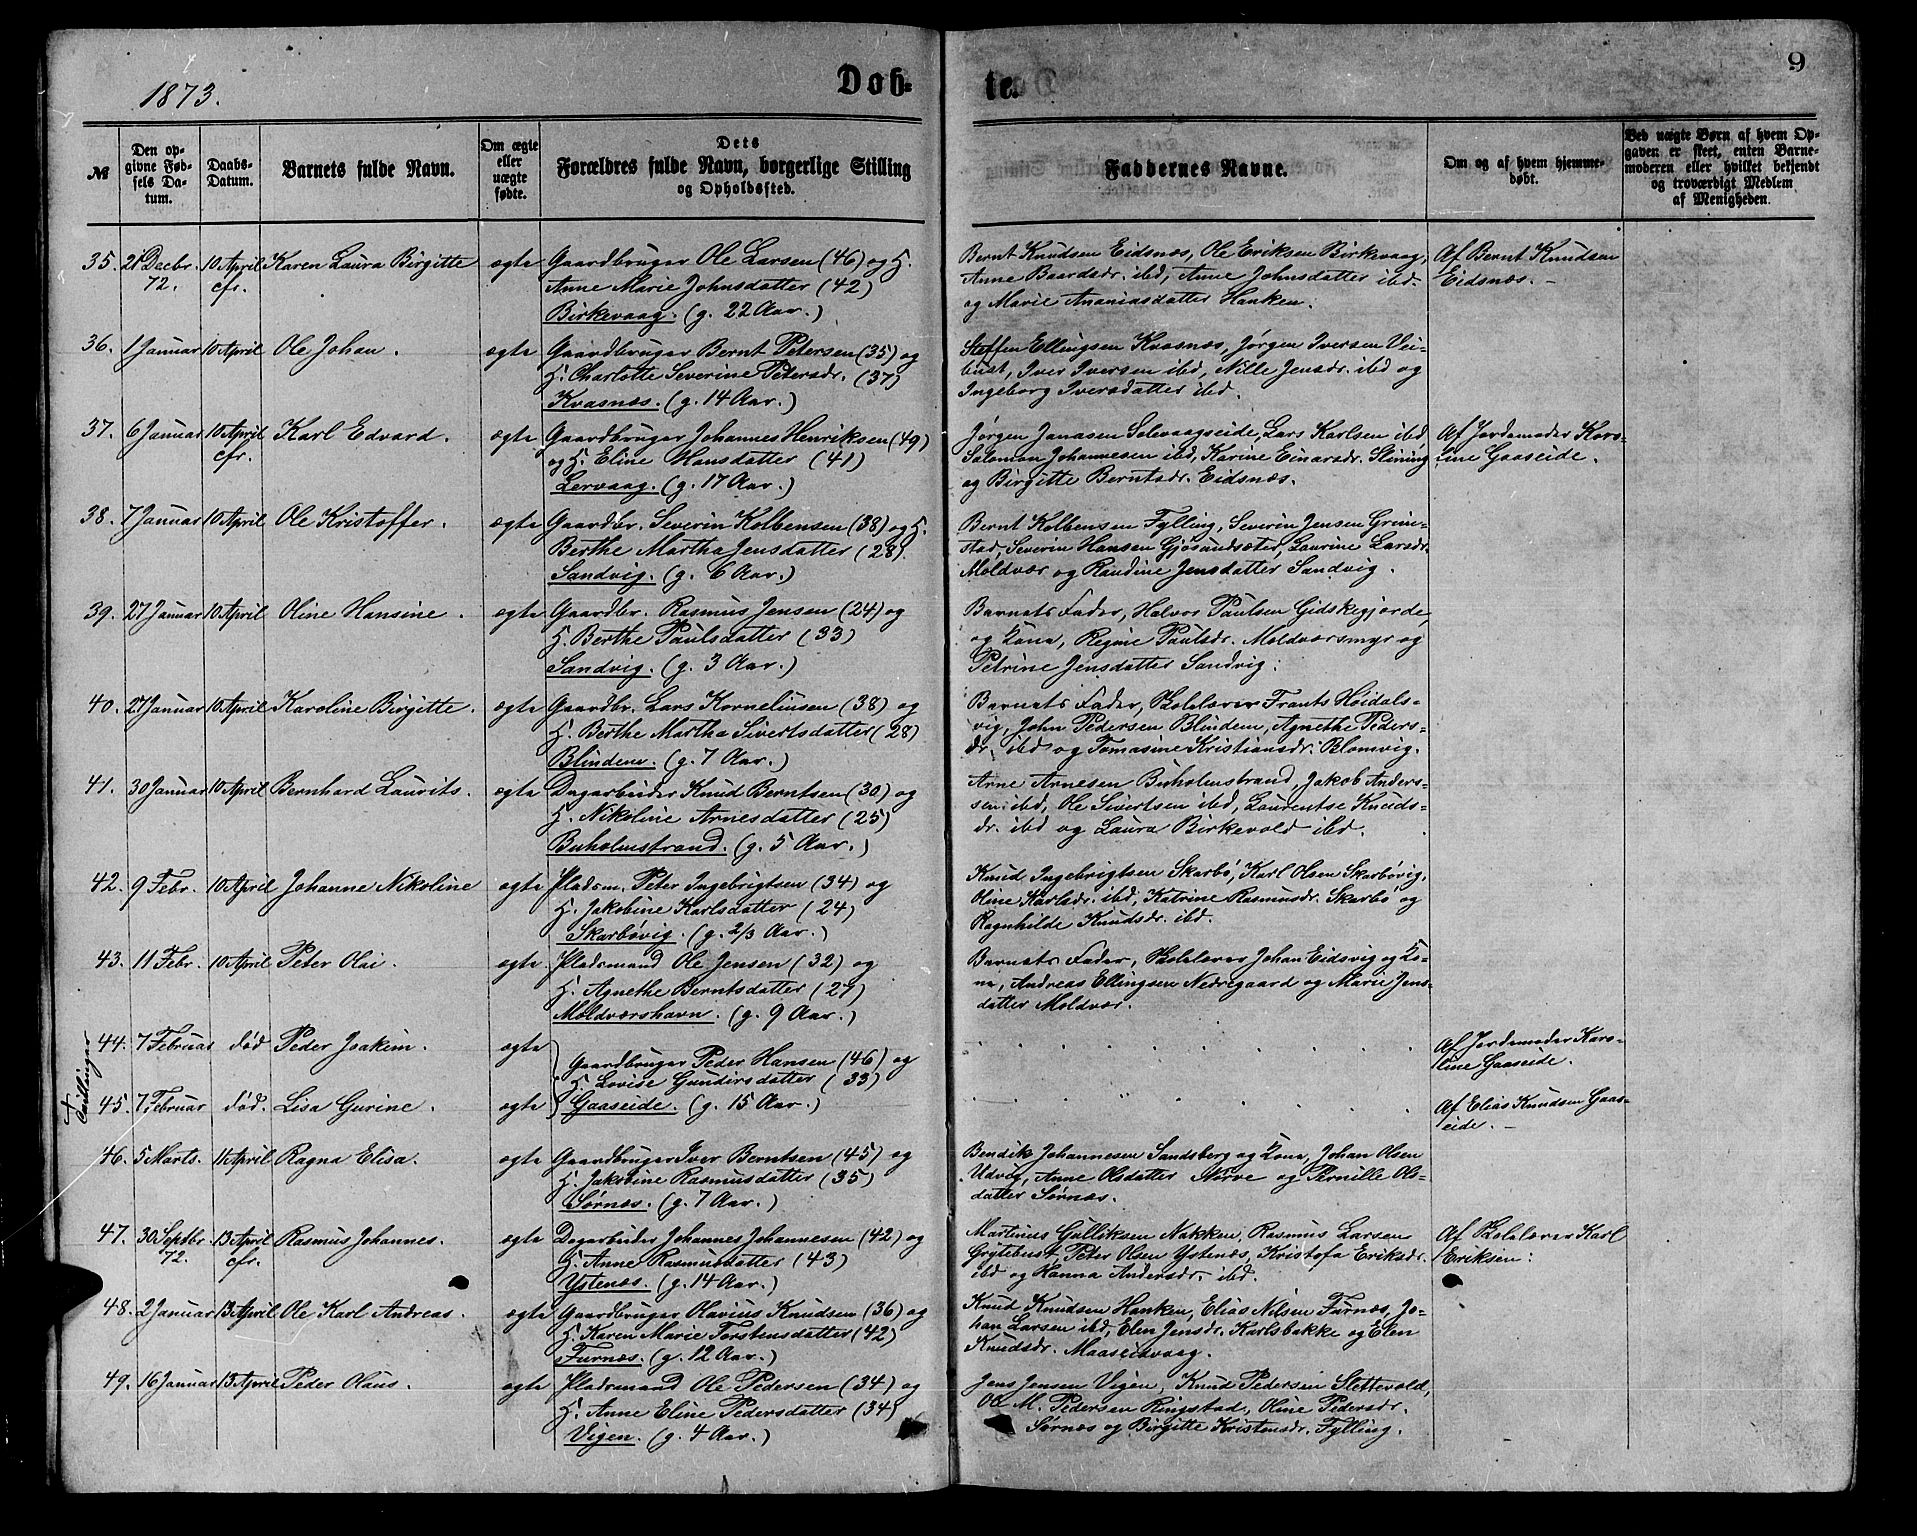 1873.
Døb-
te.
9
№
Den op-
givne Fød-
sels Da-
tum.
Daabs-
Datum.
Barnets fulde Navn.
Om ægte
eller
uægte
fødte.
Dets
Forældres fulde Navn, borgerlige Stilling
og Opholdssted.
Faddernes Navne.
Om og af hvem hjemme-
døbt.
Ved uægte Børn af hvem Op-
gaven er skeet, enten Barne-
moderen eller hvilket bekjendt
og troværdigt Medlem
af Menigheden.
35. 21 Decbr. 10 April Karen Laura Birgitte ægte Gaardbruger Ole Larsen (46) og H.
72. cfr. Anne Marie Johnsdatter (42)
Birkevaag. (g. 22 Aar.)
Bernt Knudsen Eidsnæs, Ole Eriksen Birkvaag,
Anne Baardsdr. ibd, Anne Johnsdatter ibd.
og Marie Ananiasdatter Hanken.
Af Bernt Knudsen
Eidsnæs. -
36. 1 Januar 10 April Ole Johan. ægte Gaardbruger Bernt Petersen (35) og
H. Charlotte Severine Petersdr. (37)
Kvasnæs. (g. 14 Aar.)
Steffen Ellingsen Kvasnæs, Jørgen Iversen Vei-
bust, Iver Iversen ibd, Nille Jensdr. ibd og
Ingeborg Iversdatter ibd.
37. 6 Januar 10 April Karl Edvard. ægte Gaardbruger Johannes Henriksen (49)
cfr. og H. Eline Hansdatter (41)
Lervaag. (g. 17 Aar.)
Jørgen Janasen Solevaagseide, Lars Karlsen ibd,
Salomon Johannesen ibd, Karine Einarsdr. Slining
og Birgitte Berntsdr. Eidsnæs.
Af Jordemoder Kars-
tine Gaaseide.
38. 7 Januar 10 April Ole Kristoffer. ægte Gaardbr. Severin Kolbensen (38) og H.
Berthe Martha Jensdatter (28).
Sandvig. (g. 6 Aar.)
Bernt Kolbensen Fylling, Severin Jensen Grim-
stad, Severin Hansen Gjøsundsæter, Laurine Larsdr.
Moldvær og Randine Jensdatter Sandvig.
39. 27 Januar 10 April Oline Hansine. ægte Gaardbr. Rasmus Jensen (24) og
H. Berthe Paulsdatter (33)
Sandvig. (g. 3 Aar.)
Barnets Fader, Halvor Paulsen Gidskegjerde,
og Kona, Regine Paulsdr. Moldværsmyr og
Petrine Jensdatter Sandvig.
40. 27 Januar 10 April Karoline Birgitte. ægte Gaardbr. Lars Korneliusen (38) og
H. Berthe Martha Sivertsdatter (28)
Blindem. (g. 7 Aar.)
Barnets Fader, Skolelærer Frants Høidals-
vig, John Pedersen Blindem, Agnethe Peders-
dr. ibd og Tomasine Kristiansdr. Blomvig.
41. 30 Januar 10 April Bernhard Laurits. ægte Dagarbeider Knud Berntsen (30) og
H. Nikoline Arnesdatter (25)
Buholmstrand. (g. 5 Aar.)
Arne Arnesen Buholmstrand, Jakob Anders-
sen ibd, Ole Sivertsen ibd, Laurentse Knuds-
dr. ibd og Laura Birkevold ibd.
42. 9 Febr. 10 April Johanne Nikoline ægte Pladsm. Peter Ingebrigtsen (34) og
H. Jakobine Karlsdatter (24)
Skarbøvig. (g. 2/3 Aar.)
Knud Ingebrigtsen Skarbø, Karl Olsen Skarbøvig,
Oline Karlsdr. ibd, Katrine Rasmusdr. Skarbø og
Ragnhilde Knudsdr. ibd.
43. 11 Febr. 10 April Peter Olai. ægte Pladsmand Ole Jensen (32) og
H. Agnethe Berntsdatter (27)
Moldværshavn. (g. 9 Aar.)
Barnets Fader, Skolelærer Johan Eidsvig og Ko-
na, Andreas Ellingsen Nedregaard og Marie Jens-
datter Moldvær.
Tvillinger
44. 7 Februar død Peder Joakim. ægte
Gaardbruger Peder Hansen (46) og
H. Lovise Gundersdatter (33)
Af Jordemoder Kars-
tine Gaaseide.
45. 7 Februar død. Lisa Gurine. ægte Gaaseide. (g. 15 Aar.)
Af Elias Knudsen Gaas-
eide. -
46. 5 Marts. 11 April Ragna Elisa. ægte Gaardbruger Iver Berntsen (45) og
H. Jakobine Rasmusdatter (35)
Sørnæs. (g. 7 Aar.)
Bendik Johannesen Sandsberg og Kona, Johan Olsen
Udvig, Anne Olsdatter Nørve og Pernille Ols-
datter Sørnæs.
47. 30 Septbr. 13 April Rasmus Johannes. ægte Dagarbeider Johannes Johannesen (42) og
72. cfr. H. Anne Rasmusdatter (43)
Ystenæs. (g. 14 Aar.)
Martinus Gulliksen Nakken, Rasmus Larsen
Grytebust, Peter Olsen Ystenæs, Kristofa Eriksdr.
ibd og Hanna Andersdr. ibd.
Af Skolelærer Karl
Eriksen:
48. 2 Januar 13 April Ole Karl Andreas. ægte Gaardbruger Olavius Knudsen (36) og
H. Karen Marie Torstensdatter (42)
Furnæs. (g. 12 Aar.)
Knud Knudsen Hanken, Elias Nilsen Furnæs, Jo-
han Larsen ibd, Elen Jensdr. Karlsbakke og Elen
Knudsdr. Maaseidvaag.
49. 16 Januar 13 April Peder Olaus. ægte Pladsmand Ole Pedersen (34) og
H. Anne Eline Pedersdatter (34)
Vegen. (g. 4 Aar.)
Jens Jensen Vigen, Knud Pedersen Slettevold,
Ole M. Pedersen Ringstad, Oline Pedersdr.
Sørnæs og Birgitte Kristensdr. Fylling.